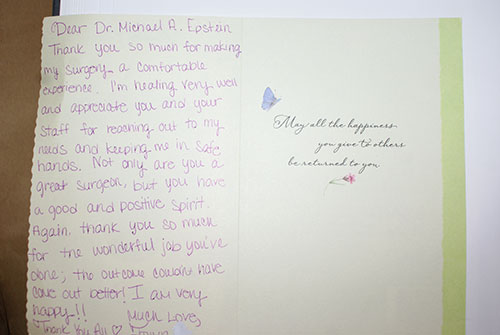 Dear Dr. Michael A. Epstein
Thank you so much for making
my surgery a comfortable
experience. I'm healing very well
and appreciate you and your
staff for reaching out to my
needs and keeping me in safe
hands. Not only are you a
great surgeon, but you have
a good and positive spirit.
Again, thank you so much
for the wonderful job you've
done; the outcome couldn't have
come out better! I am very
happy!!
Much Love,
Thank You All
May all the happiness
you give to others
be returned to you.